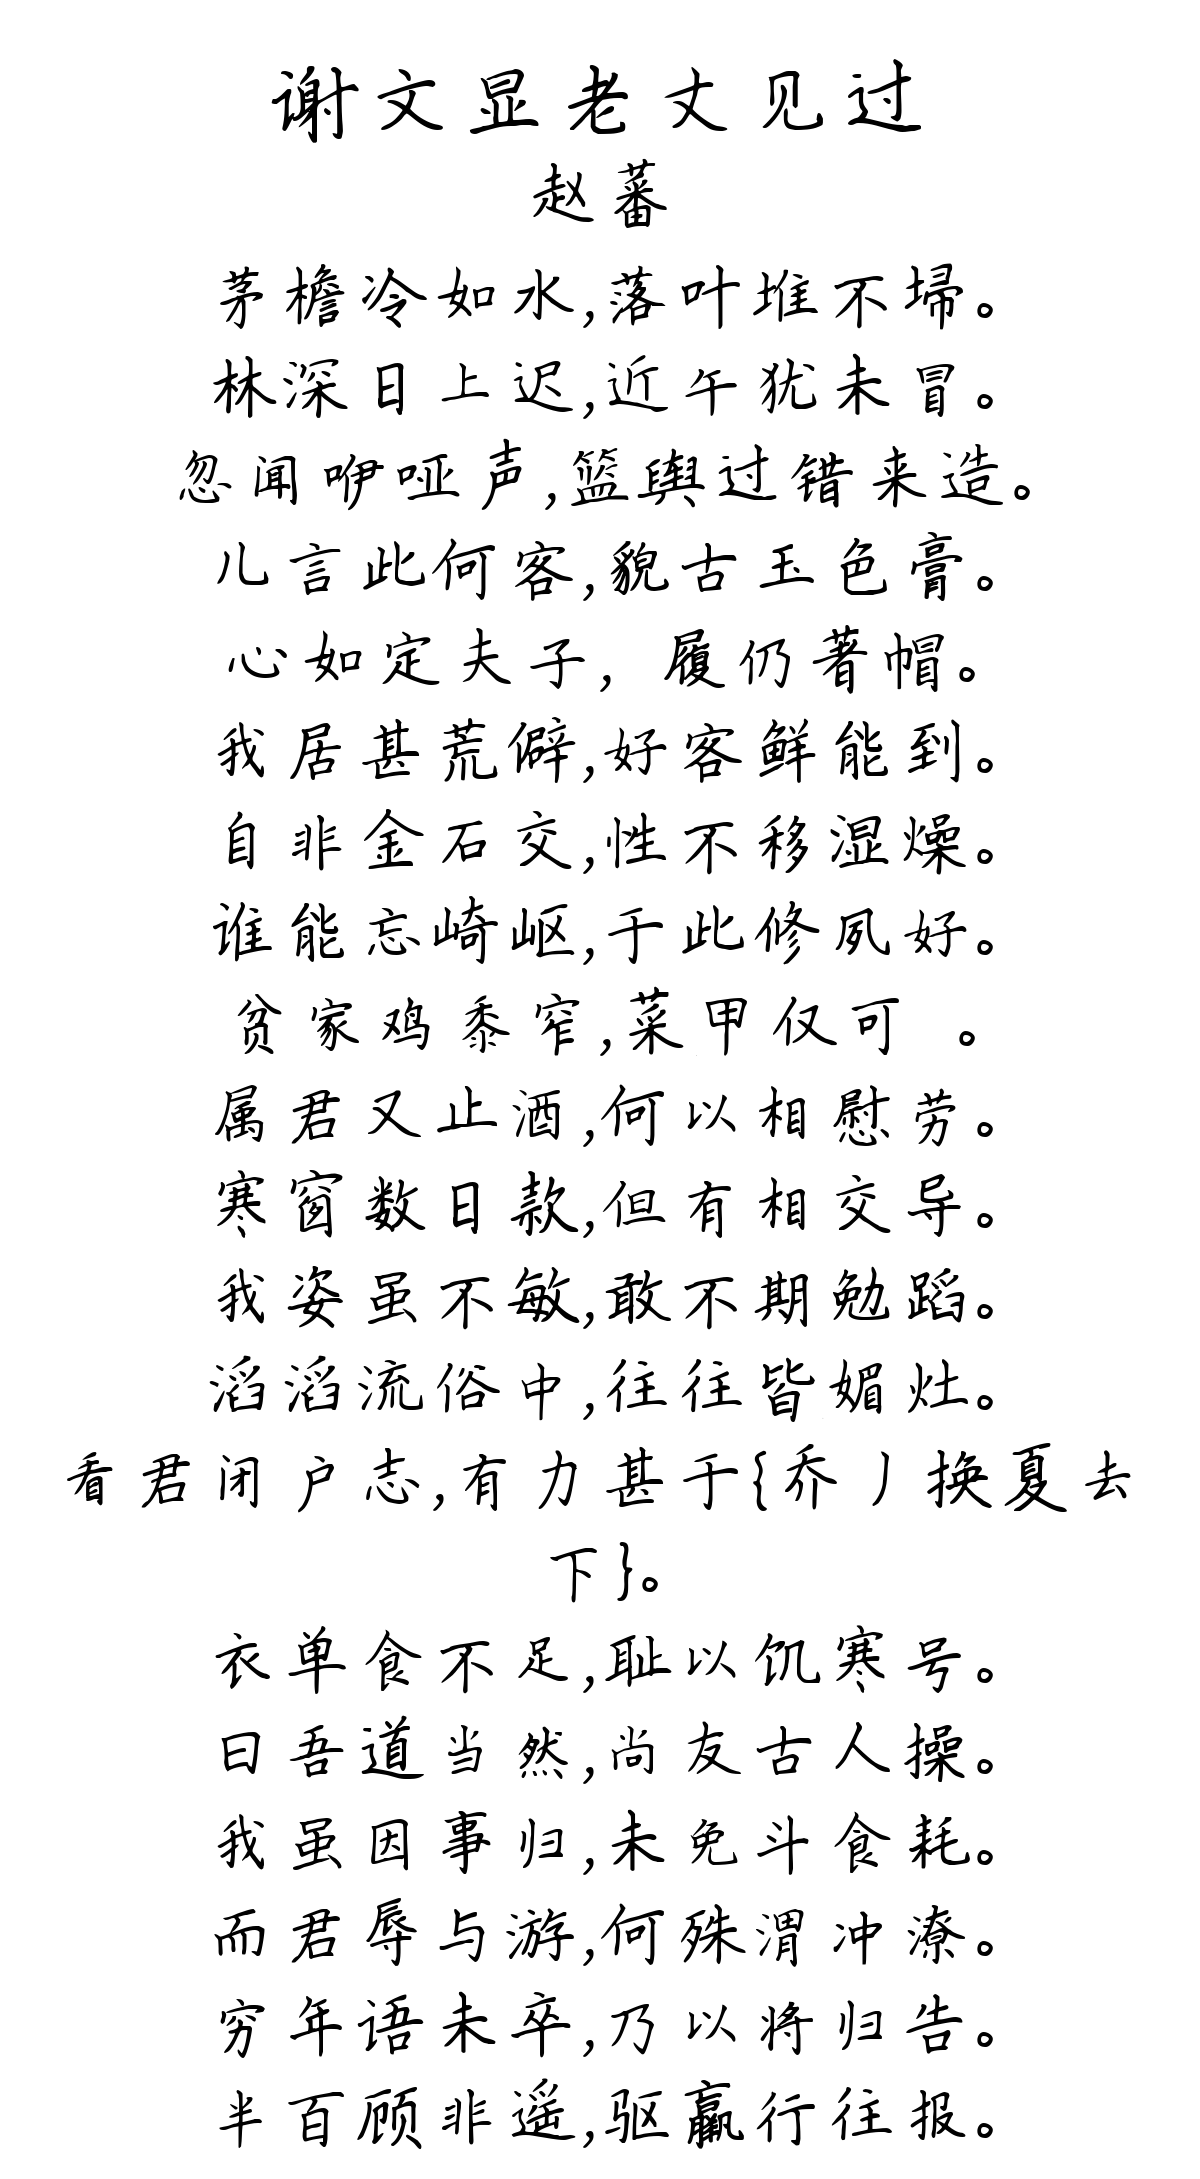 谢文显老丈见过
赵蕃
茅檐冷如水,落叶堆不埽。
林深日上迟,近午犹未冒。
忽闻咿哑声,篮舆过错来造。
儿言此何客,貌古玉色膏。
心如定夫子,履仍著帽。
我居甚荒僻,好客鲜能到。
自非金石交,性不移湿燥。
谁能忘崎岖,于此修夙好。
贫家鸡黍窄,菜甲仅可 。
属君又止酒,何以相慰劳。
寒窗数日款,但有相交导。
我姿虽不敏,敢不期勉蹈。
滔滔流俗中,往往皆媚灶。
看君闭户志,有力甚于{乔丿换夏去
下}。
衣单食不足,耻以饥寒号。
曰吾道当然,尚友古人操。
我虽因事归,未免斗食耗。
而君辱与游,何殊渭冲潦。
穷年语未卒,乃以将归告。
半百顾非遥,驱羸行往报。